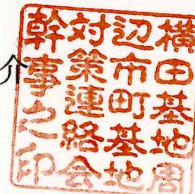 介
横田基地周
辺市町基地
対策連絡会
幹事之印